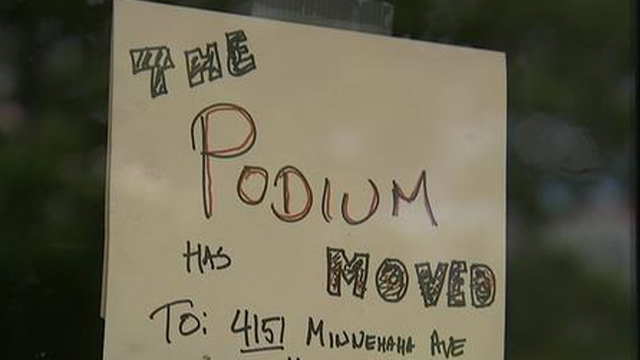 THE
PODIUM
HAS MOVED
TO: 4151 MINNEHAHA AVE